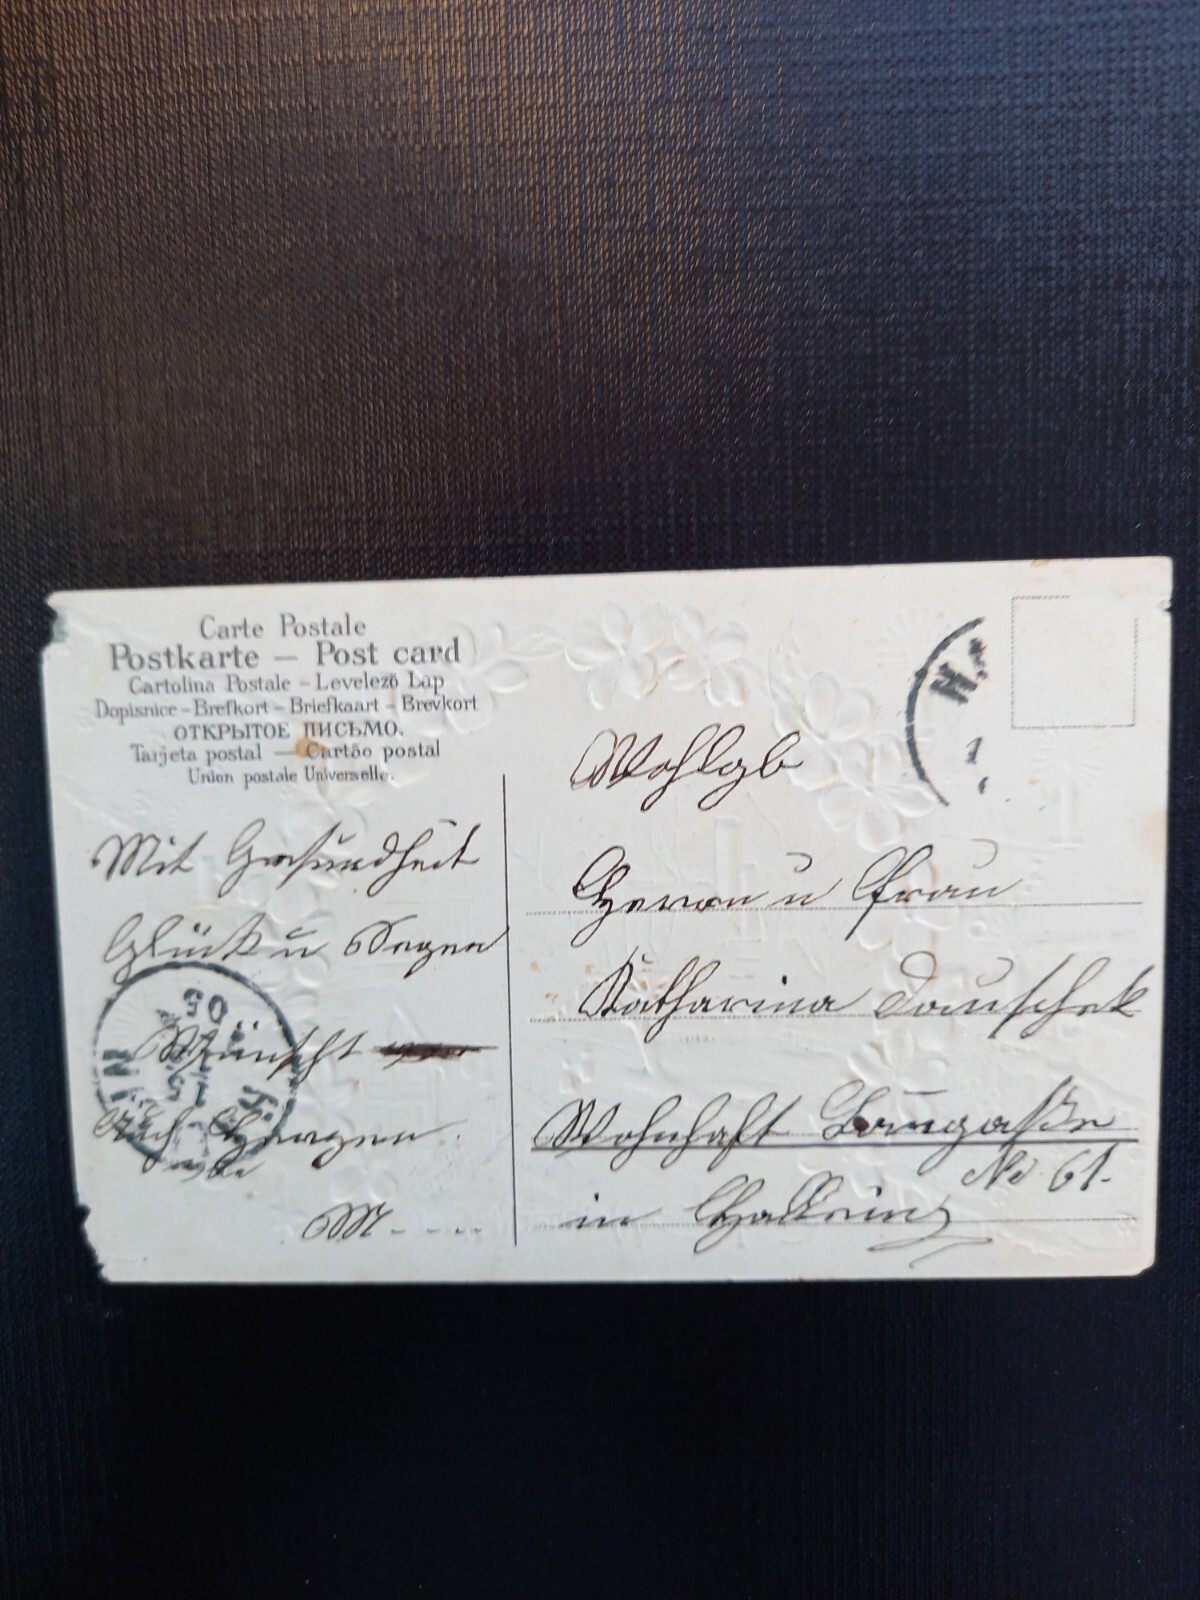 Carte Postale
Postkarte — Post card
Cartolina Postale - Levelező Lap
Dopisnice - Brefkort - Briefkaart - Brevkort
ОТКРЫТОЕ ПИСЬМО.
Tarjeta postal — Cartão postal
Union postale Universelle.
Mit Gesundheit
Glück u Segen
Wünscht
Euch Herzen
M - - - -
Wohlgb
Herrn u Frau
Katharina Dauschek
Wohnhaft Langgaße
No 61.
in